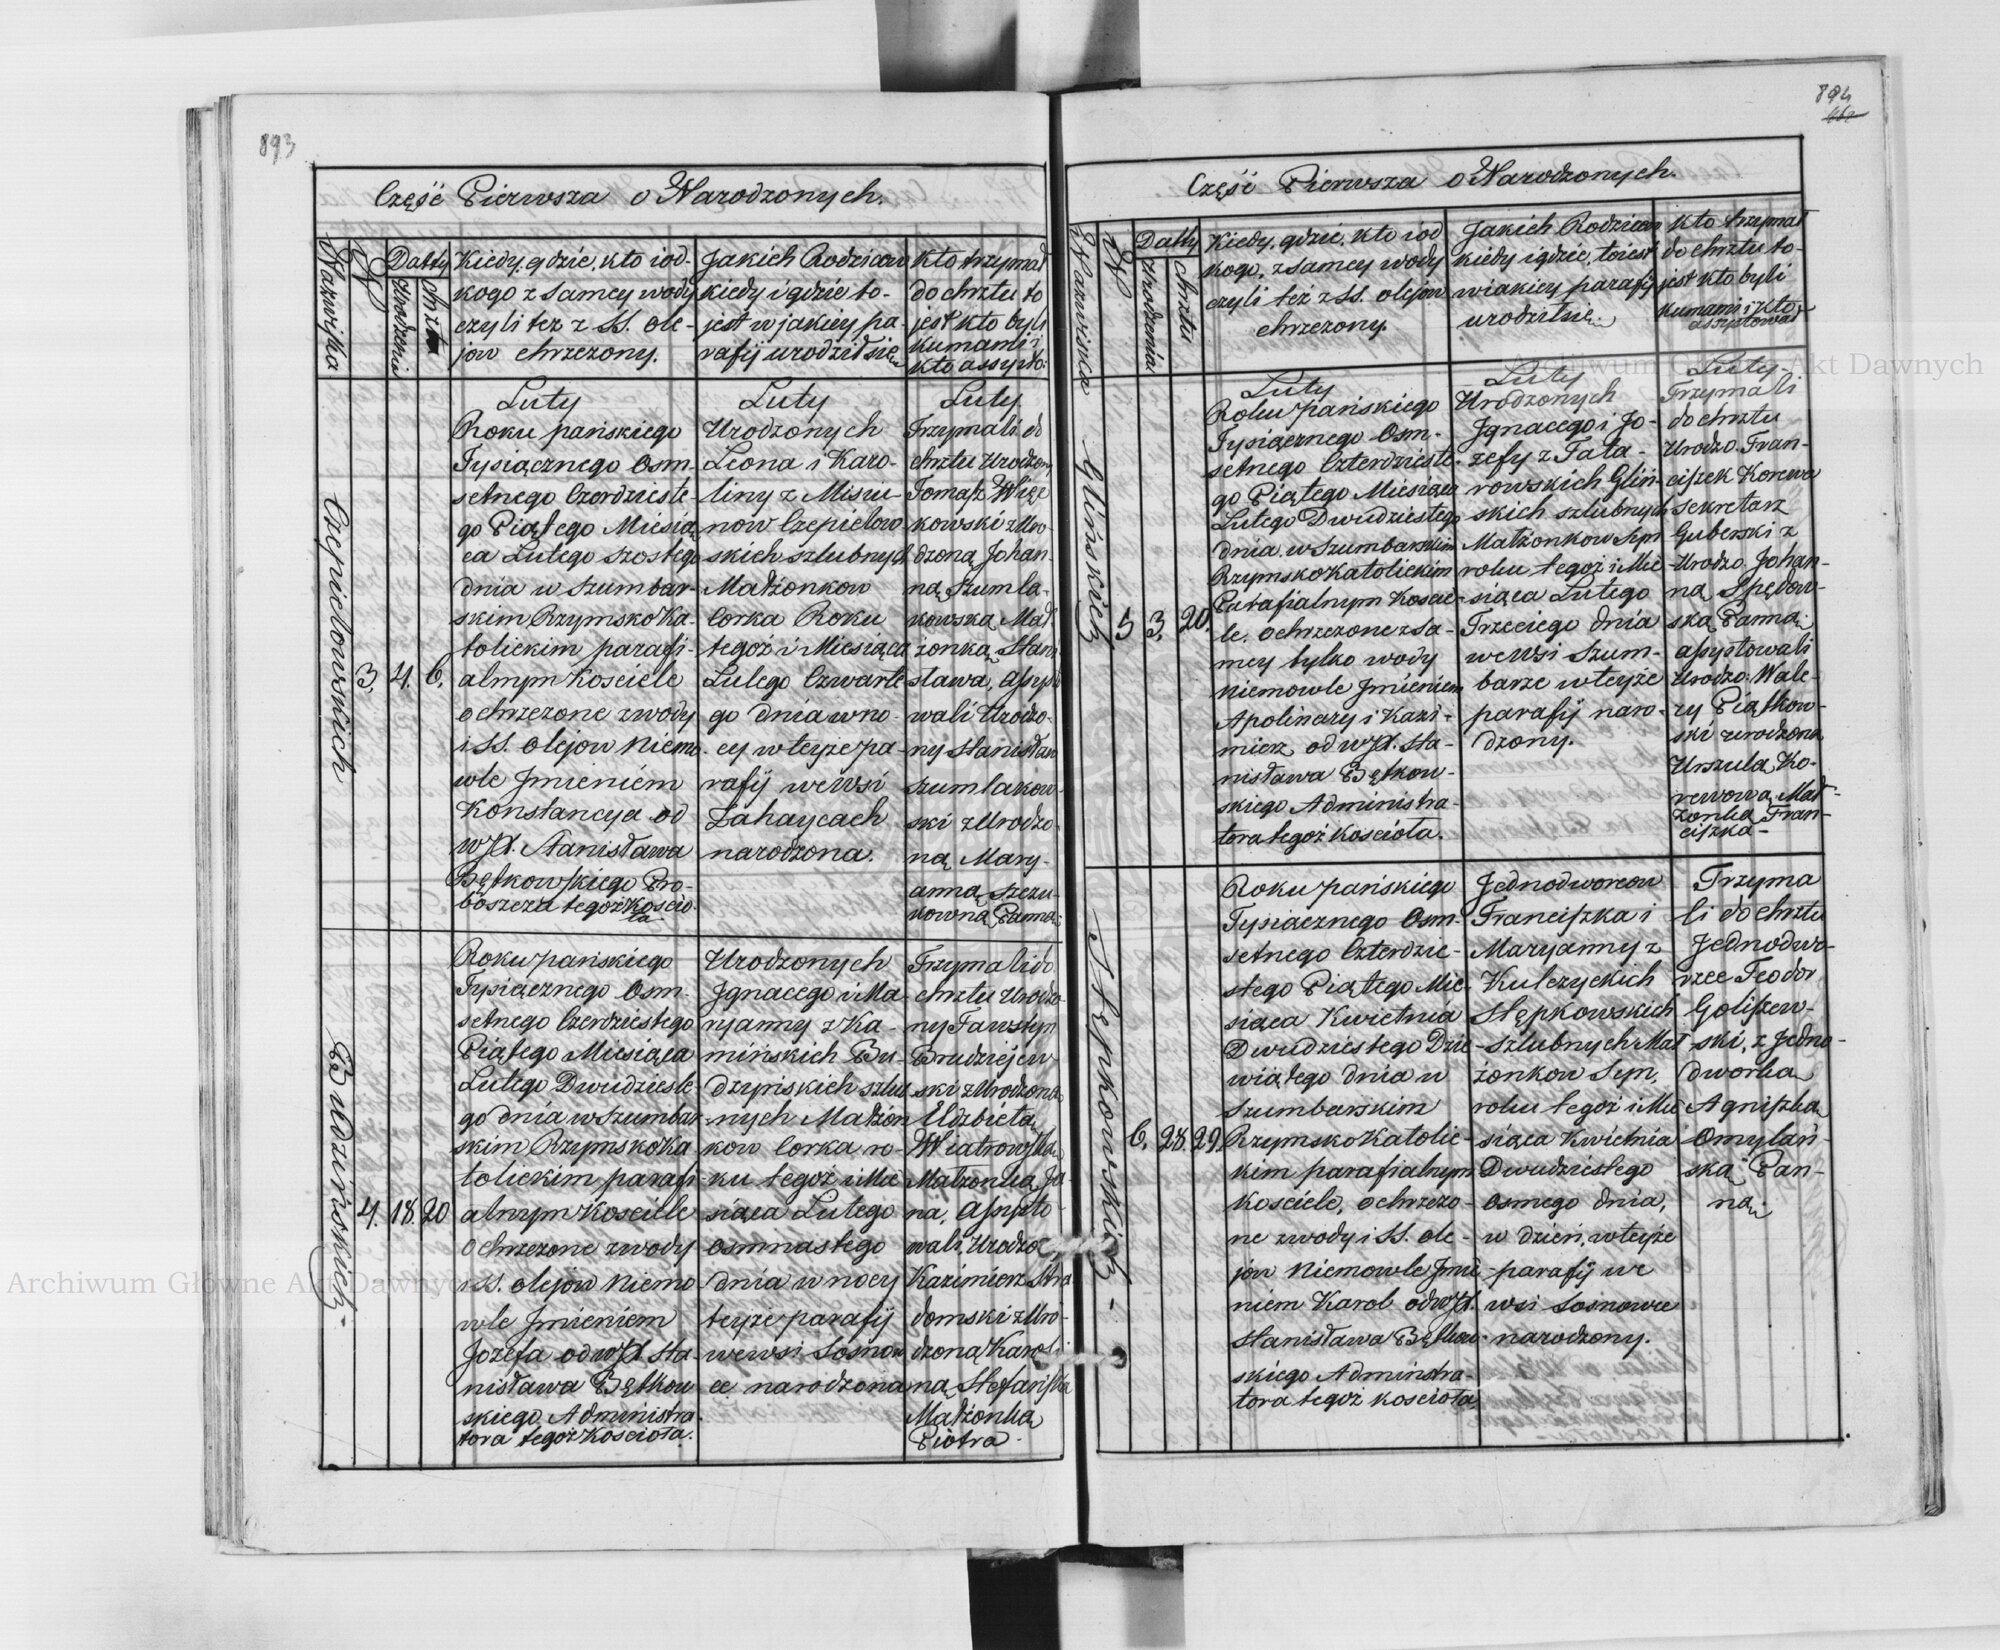 893
Część Pierwsza o Narodzonych.
Nazwiska
N
Datty
Urodzenia
chrztu
Kiedy, gdzie, kto i od-
kogo z samey wody
czyli tez z SS. ole-
jow chrzczony.
Jakich Rodzicow
kiedy i gdzie to-
jest w jakiey pa-
rafij urodził się
Kto trzymał
do chrztu to
jest kto byli
Kumami i
kto assysto:
Czepielowskich
3.
4.
6.
Luty
Roku pańskiego
Tysiącznego Osm-
setnego Czerdzieste-
go Piątego Miesią
ca Lutego szostego
dnia w Szumbar-
skim Rzymsko Ka-
tolickim parafi-
alnym Kosciele
ochrzczone z wody
i SS. olejow Niemo
wle Jmieniém
Konstancya od
WJX. Stanisława
Bętkowskiego Pro-
boszcza tegoż Koscio-
ła
Luty
Urodzonych
Leona i Karo-
liny z Misiu-
now Czepielow
skich szlubnych
Małżonkow
Corka Roku
tegoż i Miesiąca
Lutego Czwarte
go dnia w no-
cy w teyże pa-
rafij we Wsi
Zahaycach
narodzona.
Luty
Trzymali do
chrztu Urodzony
Tomasz Więc
kowski z Uro-
dzoną Johan-
ną Szumla-
kowską Mał
żonką Stani
sława, Assysto
wali Urodzo-
ny Stanisław
Szumlakow-
ski z Urodzo-
ną Mary-
anną Szczu-
kowną Panną
Budzińskich
4.
18.
20
Roku pańskiego
Tysiącznego Osm-
setnego Czerdziestego
Piątego Miesiąca
Lutego Dwudzieste
go dnia w Szumbar
skim Rzymsko Ka
tolickim parafi
alnym Kosciele
Ochrzczone z wody
i SS. olejow Niemo
wle Jmieniem
Jozefa od WJX Sta-
nisława Bętkow
skiego Administra
tora tegoż Kosciola.
Urodzonych
Jgnacego i Ma-
ryanny z Ka-
mińskich Bu-
dzyńskich szlub
nych Małżon
kow Corka ro-
ku tegoż i Mie
siąca Lutego
osmnastego
dnia w nocy
teyże parafij
we wsi Sosnow
ce narodzona
Trzymali do
chrztu Urodzo-
ny Fawstyn
Brudziejew
ski z Urodzoną
Elzbietą
Wiatrowską
Małżonką Ja-
na, Assysto-
wali, Urodzo
Kazimierz Stra
domski z Uro-
dzoną Karoli
ną Stefańską
Małżonką
Piotra.
894
Część Pierwsza o Narodzonych.
Nazwiska
N
Datty
Urodzenia
chrztu
Kiedy, gdzie, kto i od
kogo, z samey wody
czyli też z SS. olejow
chrzczony.
Jakich Rodzicow
kiedy i gdzie, to iest
w iakiey parafij
urodził się.
Kto trzymał
do chrztu to-
jest kto byli
Kumami i kto
assystował
Glińskich
5
3.
20.
Luty
Roku pańskiego
Tysiącznego Osm-
setnego Czterdzieste-
go Piątego Miesiąca
Lutego Dwudziestego
dnia w Szumbarskim
Rzymsko Katolickim
Parafialnym Koscie-
le, ochrzczone z Sa-
mey tylko wody
Niemowle Jmieniem
Apolinary i Kazi-
mierz od WJX. Sta-
nisława Bętkow-
skiego Administra-
tora tegoż Kosciola.
Luty
Urodzonych
Jgnacego i Jo-
zefy z Tata-
rowskich Gliń-
skich szlubnych
Małżonkow Syn
roku tegoż i Mie
siąca Lutego
Trzeciego dnia
we Wsi Szum-
barze w teyże
parafij naro-
dzony.
Luty
Trzymali
do chrztu
Urodzo. Fran-
ciszek Korewa
Sekretarz
Guberski z
Urodzo. Johan-
ną Spędow-
ską Panną,
assystowali
Urodzo. Wale-
ry Piątkow-
ski urodzona
Urszulą Ko-
rewową Mał-
żonką Fran-
ciszka
Stępkowskich
6.
28.
29.
Roku pańskiego
Tysiącznego Osm-
setnego Czterdzie-
stego Piątego Mie-
siąca Kwietnia
Dwudziestego Dzie-
wiątego dnia w
Szumbarskim
Rzymsko Katolic-
kim parafialnym
Kosciele, ochrzczo-
ne z wody i SS. ole-
jow Niemowle Jmie
niem Karol od WJX.
Stanisława Bętkow-
skiego Administra-
tora tegoż kosciola
Jednodworcow
Franciszka i
Maryanny z
Kulczyckich
Stępkowskich
szlubnych Mał
żonkow Syn,
roku tegoż i Mie
siąca Kwietnia
Dwudziestego
osmego dnia,
w dzień, w teyże
parafij we
wsi Sosnowce
narodzony.
Trzyma
li do chrztu
Jednodwo-
rzec Teodor
Goliszew-
ski, z Jedno-
dworką
Agniszką
Omylań-
ską Pan-
ną.
Archiwum Główne Akt Dawnych
Archiwum Główne Akt Dawnych